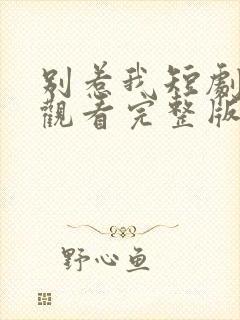 别惹我短劇
觀看完整版
野心鱼